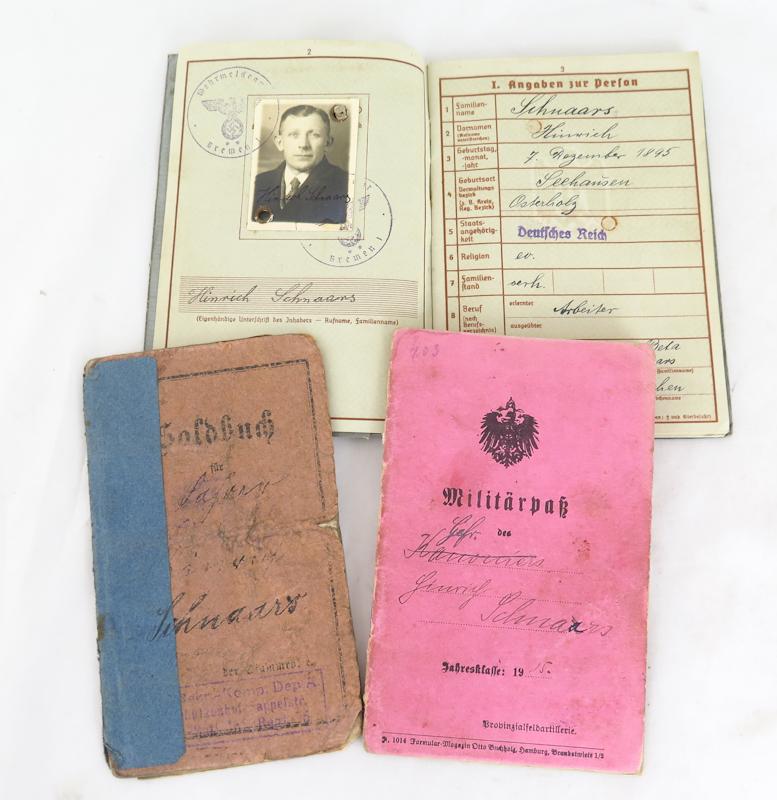 2
Wehrmeldeamt
Bremen 1
Hinrich Schnaars
Bremen 1
Hinrich Schnaars
(Eigenhändige Unterschrift des Inhabers — Rufname, Familienname)
3
I. Angaben zur Person
1 Familienname Schnaars
2 Vornamen (Rufname unterstreichen) Hinrich
3 Geburtstag, -monat, -jahr 7. Dezember 1895
4 Geburtsort Seehausen
Verwaltungsbezirk (z. B. Kreis, Reg. Bezirk) Osterholz
5 Staatsangehörigkeit Deutsches Reich
6 Religion ev.
7 Familienstand verh.
8 Beruf (nach Berufsverzeichnis) erlernter Arbeiter
ausgeübter
Soldbuch
für
Schnaars
der Stammrolle
703
Militärpaß
Gefr. des
Kanoniers
Hinrich
Schnaars
Jahresklasse: 19 15.
Provinzialfeldartillerie.
1014 Formular-Magazin Otto Buchholz, Hamburg, Brandstwiete 1/3